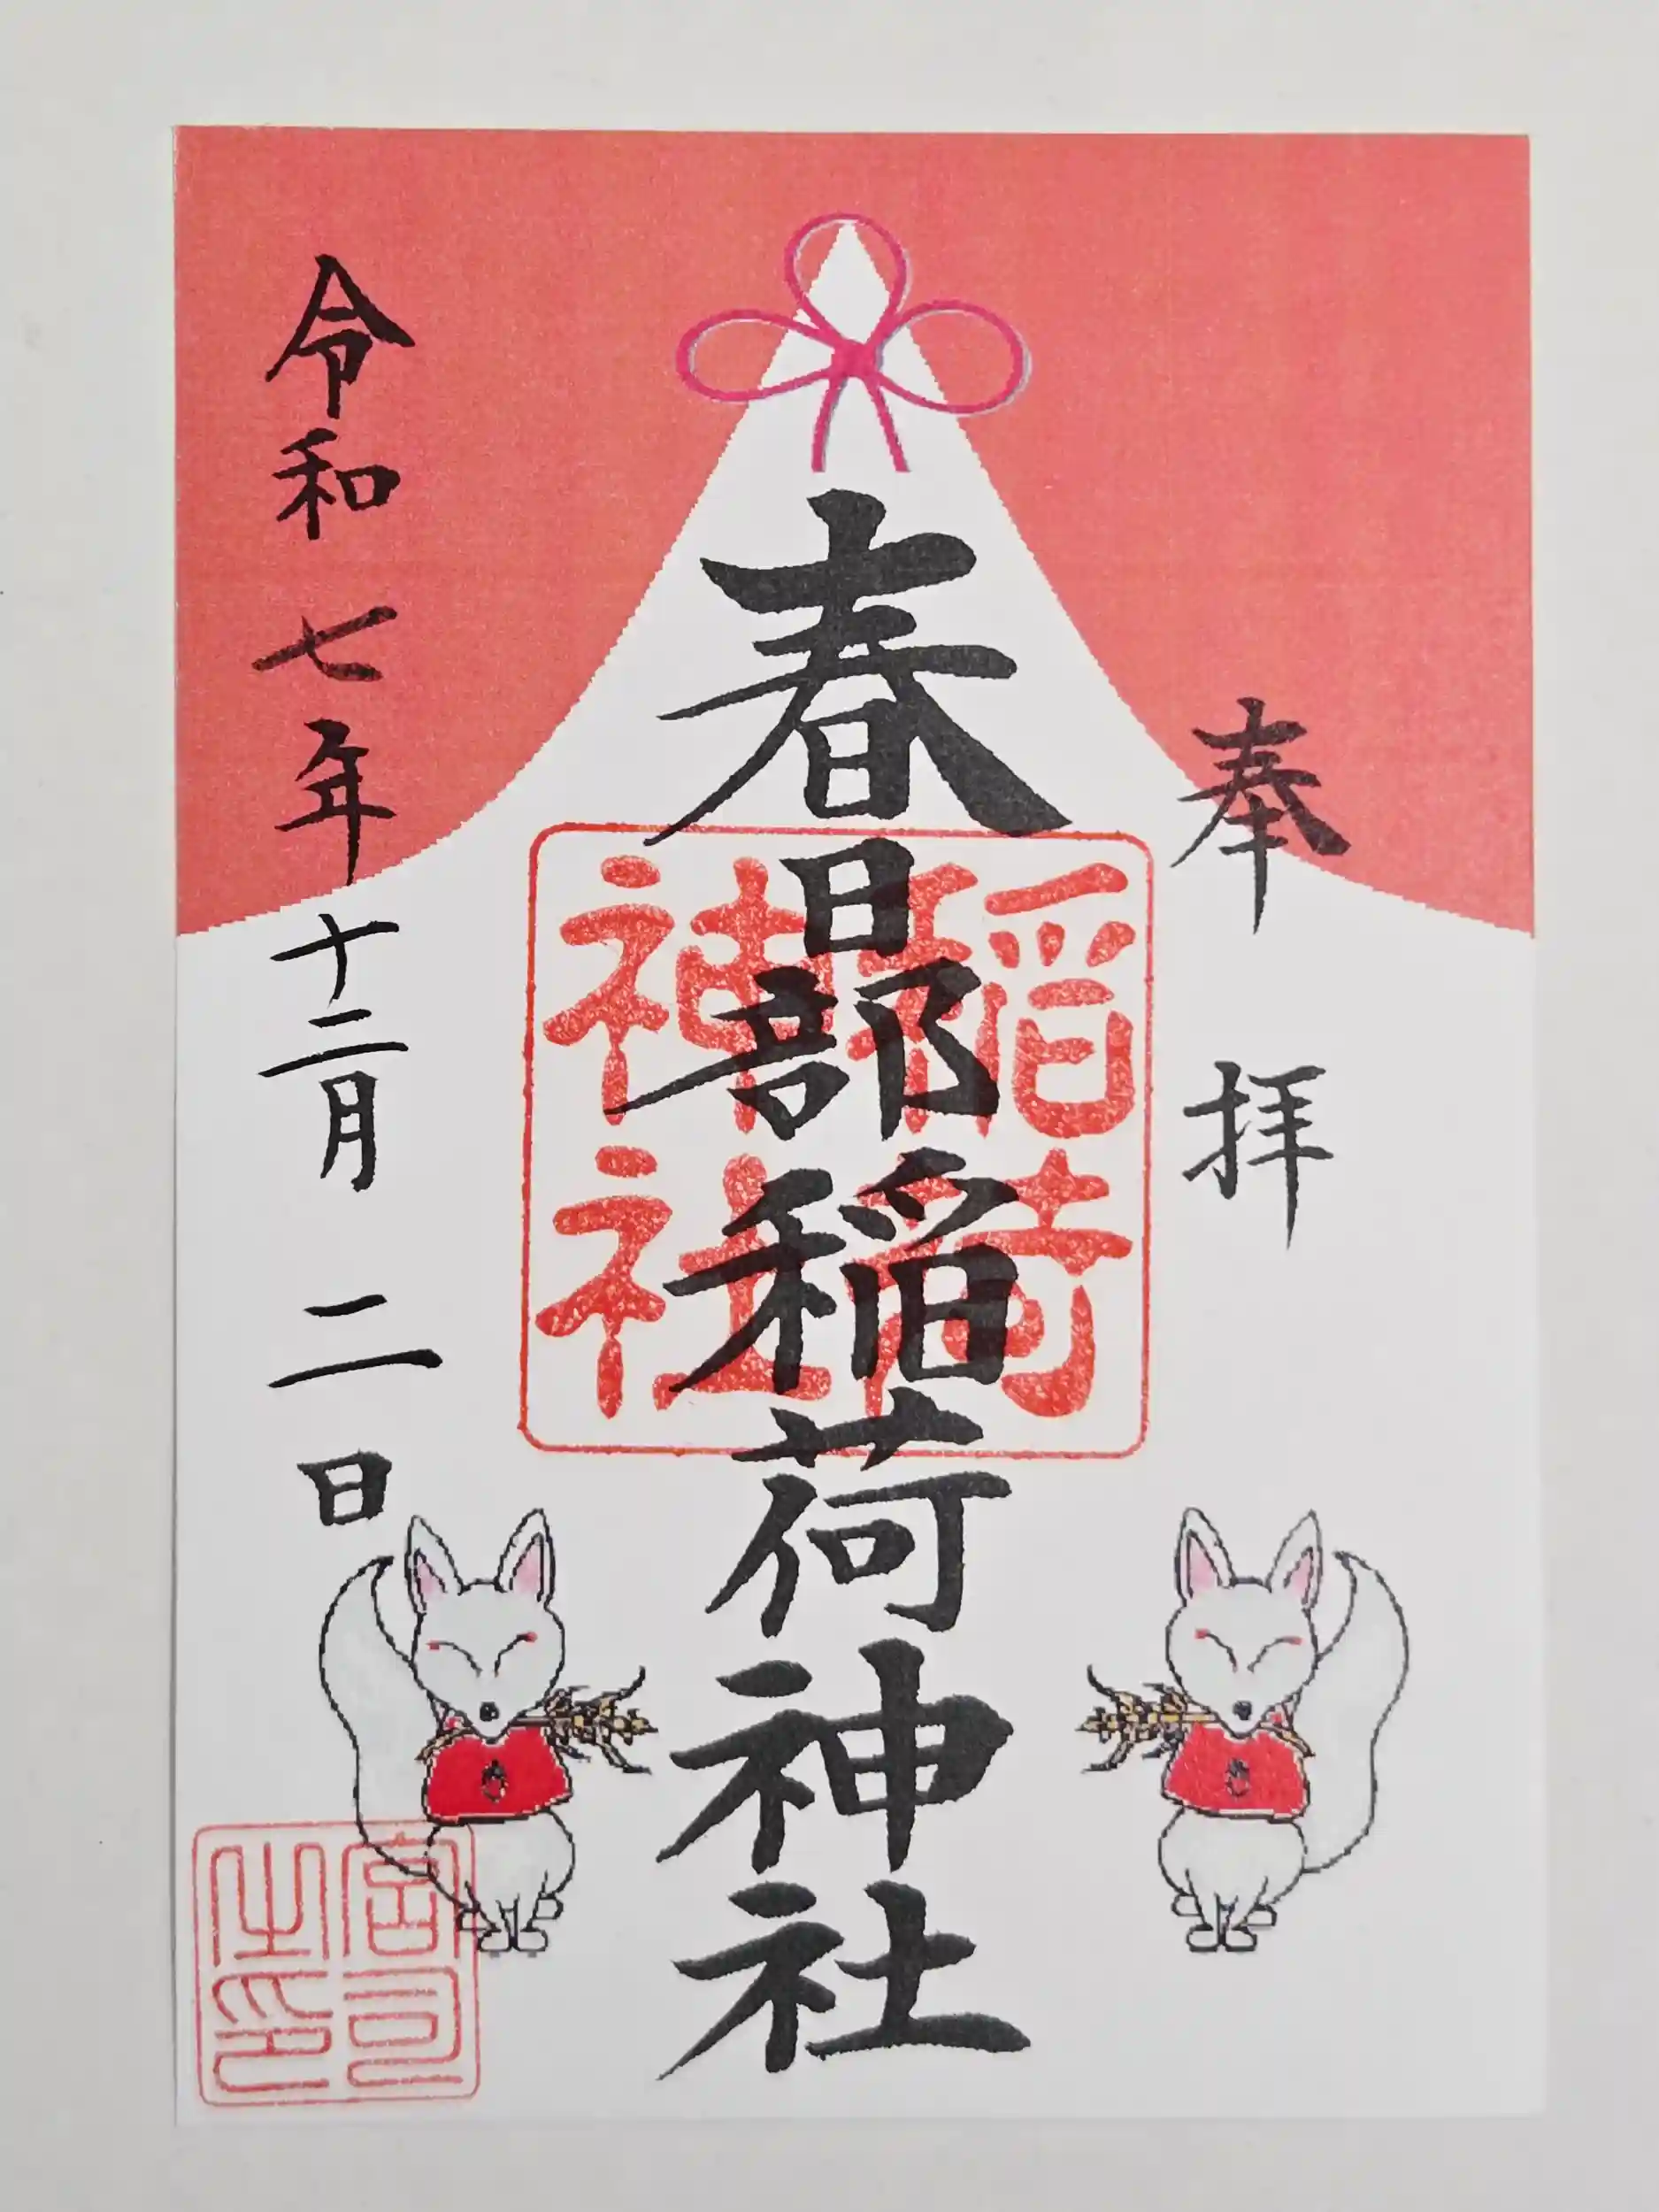 奉拝
春日部稲荷神社
稲荷
神社
令和七年十二月二日
宮司
之印